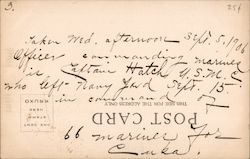 3.
25¢
Taken Wed. afternoon Sept. 5, 1906
Officer commanding marines
is Captain Hatch U.S.M.C.
who left Navy Yard Sept. 15
in command of
THIS SIDE FOR THE ADDRESS ONLY
POST CARD
66 marines for
Cuba.